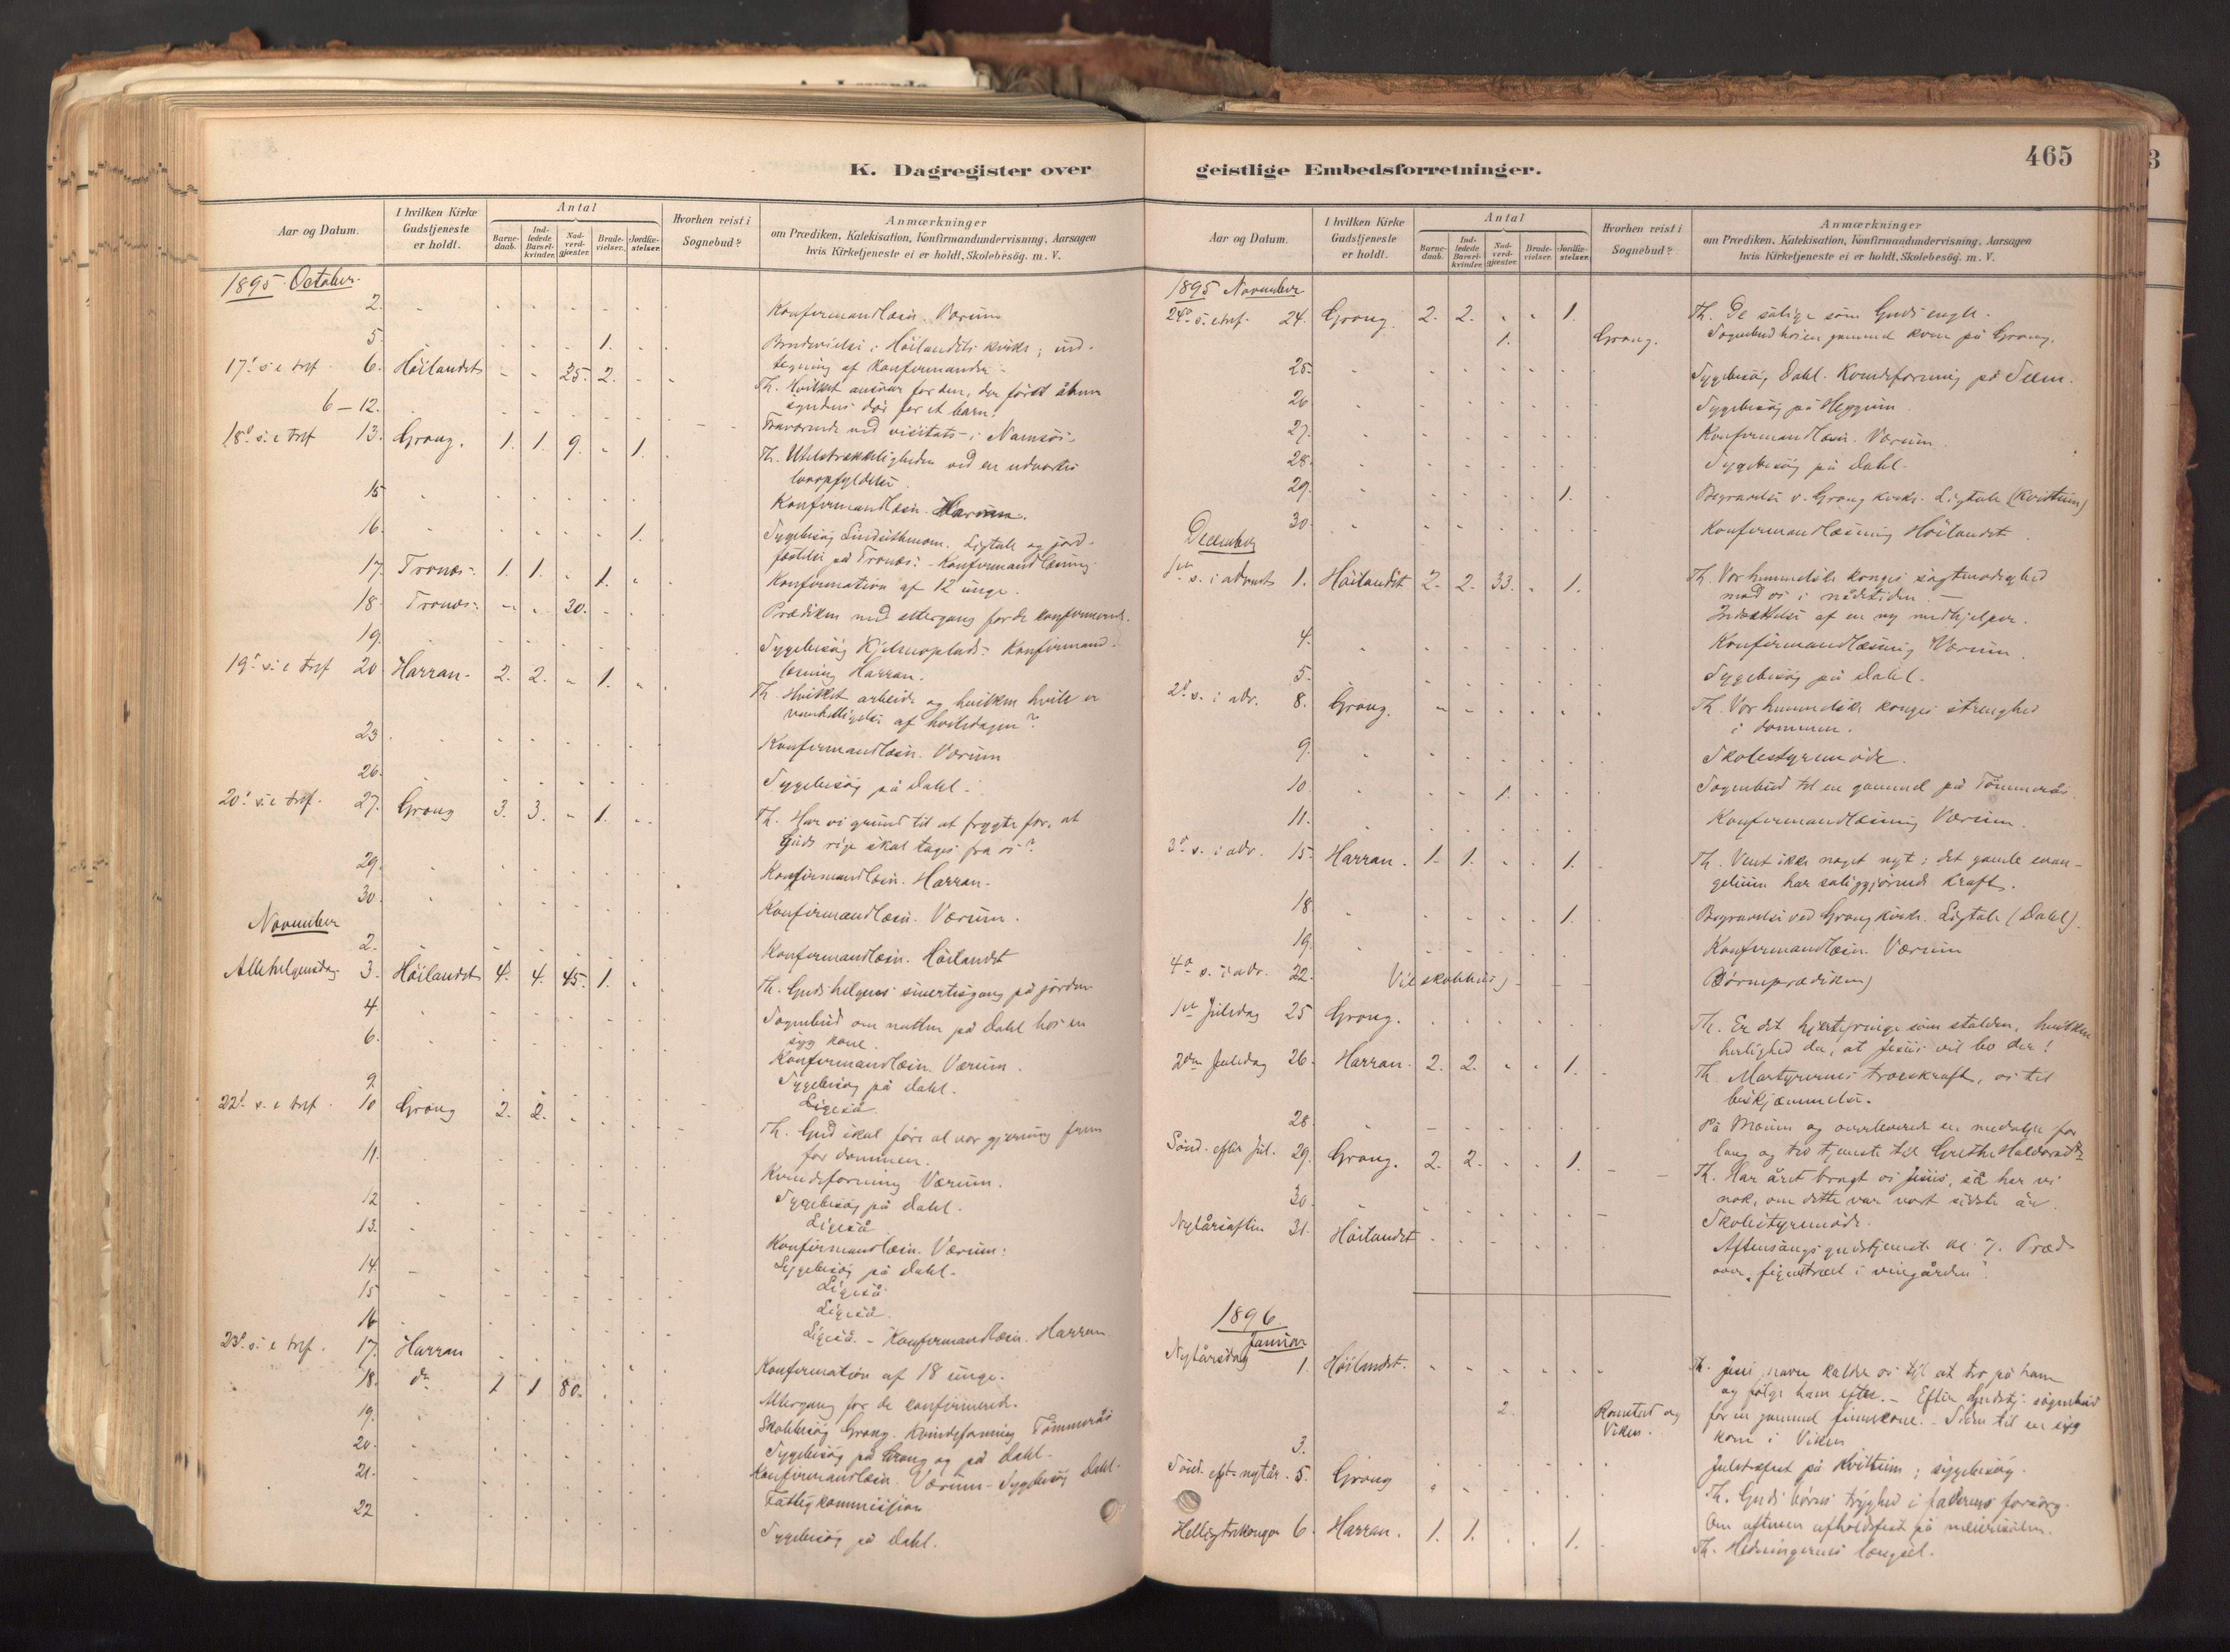 K. Dagregister over
Aar og Datum.
I hvilken Kirke Gudstjeneste er holdt.
Antal
Barne-daab.
Ind-ledede Barsel-kvinder.
Nad-verd-gjæster.
Brude-vielser.
Jordfæ-stelser.
Hvorhen reist i Sognebud?
Anmærkninger
om Prædiken, Katekisation, Konfirmandundervisning, Aarsagen
hvis Kirketjeneste ei er holdt, Skolebesög. m. V.
1895 October.
2. Konfirmandlæsn. Værum
5. 1. Brudevielse i Höilandets kirke; ind-
tegning af konfirmander.
17de s. e. tref. 6. Höilandet - - 25. 2. - Th. Hvilket ansvar for den, der först åbner
syndens dör for et barn!
6-12. Fraværende ved visitats i Namsos.
18de s. e. tref. 13. Grong. 1. 1. 9. - 1. Th. Utilstrækkeligheden ved en udvortes
lovopfyldelse.
15 Konfirmandlæsn. Harran.
16. 1. Sygebesög Ligtale og jord-
fæstelse på Trones. - Konfirmandlæsning.
17. Trones. 1. 1. - 1. Konfirmation af 12 unge.
18. Trones. - - 20. - Prædiken med altergang for de konfirmerede.
19. Sygebesög Konfirmand-
læsning Harran.
19de s. e. tref. 20 Harran. 2. 2. - 1. - Th. Hvilket arbeide og hvilken hvile er
vanhelligelse af hviledagen?
23 Konfirmandlæsn. Værum
26. Sygebesög på Dahl.
20de s. e. tref. 27. Grong 3. 3. - 1. - Th. Har vi grund til at frygte for, at
Guds rige skal tages fra os?
29. Konfirmandlæsn. Harran.
30. Konfirmandlæsn. Værum.
November
2. Konfirmandlæsn. Höilandet
Allehelgensdag 3. Höilandet 4. 4. 45. 1. Th. Guds helgenes på jorden
4. Sognebud om natten på Dahl hos en
syg kone.
6. Konfirmandlæsn. Værum.
9. Sygebesög på Dahl.
Ligeså.
22de s. e. tref. 10 Grong 2. 2. Th. Gud skal före al vor gjerning frem
for dommen.
11. Kvindeforening Værum.
12 Sygebesög på Dahl.
13. Ligeså
Konfirmandlæsn. Værum.
14. Sygebesög på Dahl.
15 Ligeså
16 Ligeså.
Ligeså. - Konfirmandlæsn. Harran.
23de s. e. tref. 17. Harran Konfirmation af 18 unge.
18. do 1 1 80. Altergang for de confirmerede.
19. Skolebesög Grong. Kvindeforening Tömmerås
20. Sygebesög på Grong og på Dahl.
21. Konfirmandlæsn. Værum - Sygebesög Dahl.
Fattigkommission
22 Sygebesög på Dahl.
465
geistlige Embedsforretninger.
Aar og Datum.
I hvilken Kirke Gudstjeneste er holdt.
Antal
Barne-daab.
Ind-ledede Barsel-kvinder.
Nad-verd-gjæster.
Brude-vielser.
Jordfæ-stelser.
Hvorhen reist i Sognebud?
Anmærkninger
om Prædiken, Katekisation, Konfirmandundervisning, Aarsagen
hvis Kirketjeneste ei er holdt, Skolebesög. m. V.
1895 November
24de s. e. tref. 24. Grong. 2. 2. - - 1. Th. De salige som Guds engle.
1. Grong. Sognebud hos en gammel kone på Grong.
25. Sygebesög Dahl. Kvindeforening på Seem.
26 Sygebesög på Heggum.
27. Konfirmandlæsn. Værum.
28. Sygebesög på Dahl.
29. 1. Begravelse v. Grong kirke. Ligtale (Kvittum)
30. Konfirmandlæsning Höilandet.
December
1ste s. i advent 1. Höilandet 2. 2. 33. - 1. Th. Vor himmelske konges sagtmodighed
mod os i nådetiden. -
Indsættelse af en ny medhjelper.
4. Konfirmandlæsning Værum.
5. Sygebesög på Dahl.
2den s. i adv. 8. Grong. Th. Vor himmelske konges strenghed
i dommen.
9. Skolestyremöde.
10 1. Sognebud til en gammel på Tömmerås.
11. Konfirmandlæsning Værum.
3die s. i adv. 15. Harran. 1. 1. - - 1. Th. Vent ikke noget nyt; det gamle evan-
gelium har saliggjörende kraft.
18. 1. Begravelse ved Grong kirke. Ligtale (Dahl).
19. Konfirmandlæsn. Værum
4de s. i adv. 22. Vie skolehus) (Börneprædiken)
1ste Juledag 25 Grong. Th. Er det hjertefringe som stalden, hvilken
herlighed da, at Jesus vil bo der!
2den Juledag 26. Harran. 2. 2. - - 1. Th. Martyrernes troeskraft, os til
beskjæmmelse.
28. På Moum og overleverede en medalje for
lang og tro tjeneste til Grethe Haldorsdtr.
Sönd. efter Jul. 29. Grong. 2. 2. - - 1. Th. Har året bragt os Jesus, så har vi
nok, om dette var vort sidste år.
30. Skolestyremöde.
Nytårsaften 31. Höilandet Aftensangsgudstjeneste kl. 7. Præd.
over "figentræet i vingården".
1896.
Januar
Nytårsdag 1. Höilandet. Th. Jesu navn kalder os til at tro på ham
og fölge ham efter. - Efter Gudstj. sognebud
2. og Viken. for en gammel finnekone. - Siden til en syg
kone i Viken
3. Juletræfest på Kvittum; sygebesög.
Sönd. eft. nytår. 5. Grong Th. Guds börns tryghed i faderens forsorg.
Om aftenen afholdsfest på meierisalen.
Helligtrekonger 6. Harran. 1. 1. - - 1. Th. Hedningernes længsel.